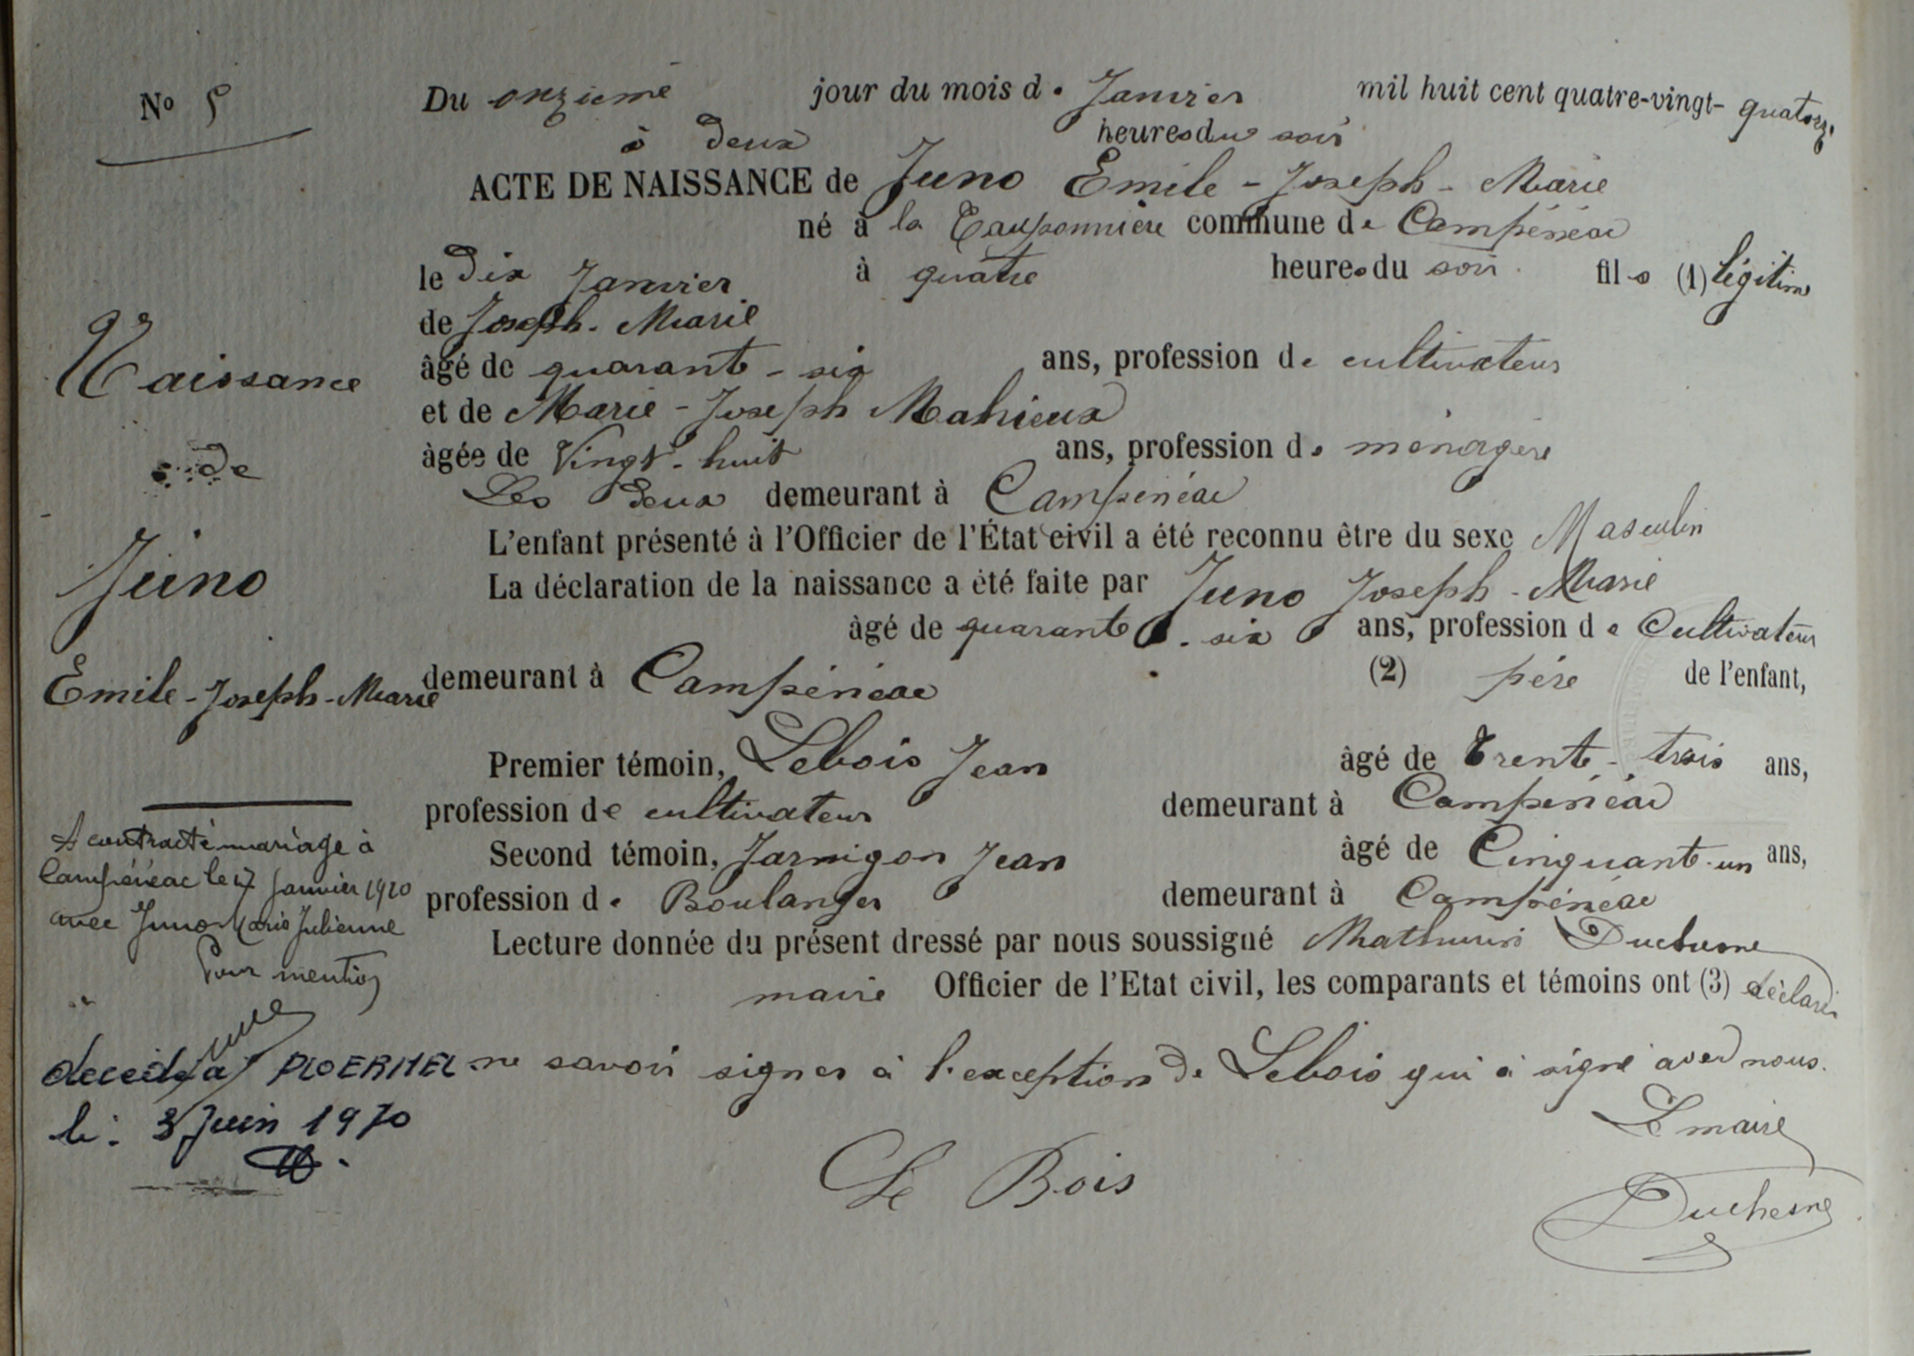 No 5
Du onzieme jour du mois de Janvier mil huit cent quatre-vingt- quatorze
à deux heures du soir
ACTE DE NAISSANCE de Juno Emile - Joseph - Marie
né à la Tauponnière commune de Campénéac
le dix Janvier à quatre heures du soir fils (1) légitime
de Joseph. Marie
âgé de quarante - six ans, profession de cultivateur
et de Marie - Joseph Mahieux
âgée de Vingt-huit ans, profession de ménagère
Les Deux demeurant à Campénéac
L'enfant présenté à l'Officier de l'État civil a été reconnu être du sexe Masculin
La déclaration de la naissance a été faite par Juno Joseph - Marie
âgé de quarante - six ans, profession de Cultivateur
demeurant à Campénéac (2) père de l'enfant,
Premier témoin, Lebois Jean âgé de Trente - trois ans,
profession de cultivateur demeurant à Campénéac
Second témoin, Jarnigon Jean âgé de Cinquante-un ans,
profession de Boulanger demeurant à Campénéac
Lecture donnée du présent dressé par nous soussigné Mathurin Duchesne
maire Officier de l'Etat civil, les comparants et témoins ont (3) déclaré
ne savoir signer à l'exception de Lebois qui a signé avec nous.
Le maire
Le Bois
Duchesne
Naissance
de
Juno
Emile - Joseph - Marie
A contracté mariage à
Campénéac le 27 Janvier 1920
avec Juno Marie Julienne
Pour mention
décédé à PLOERMEL
le: 3 Juin 1970